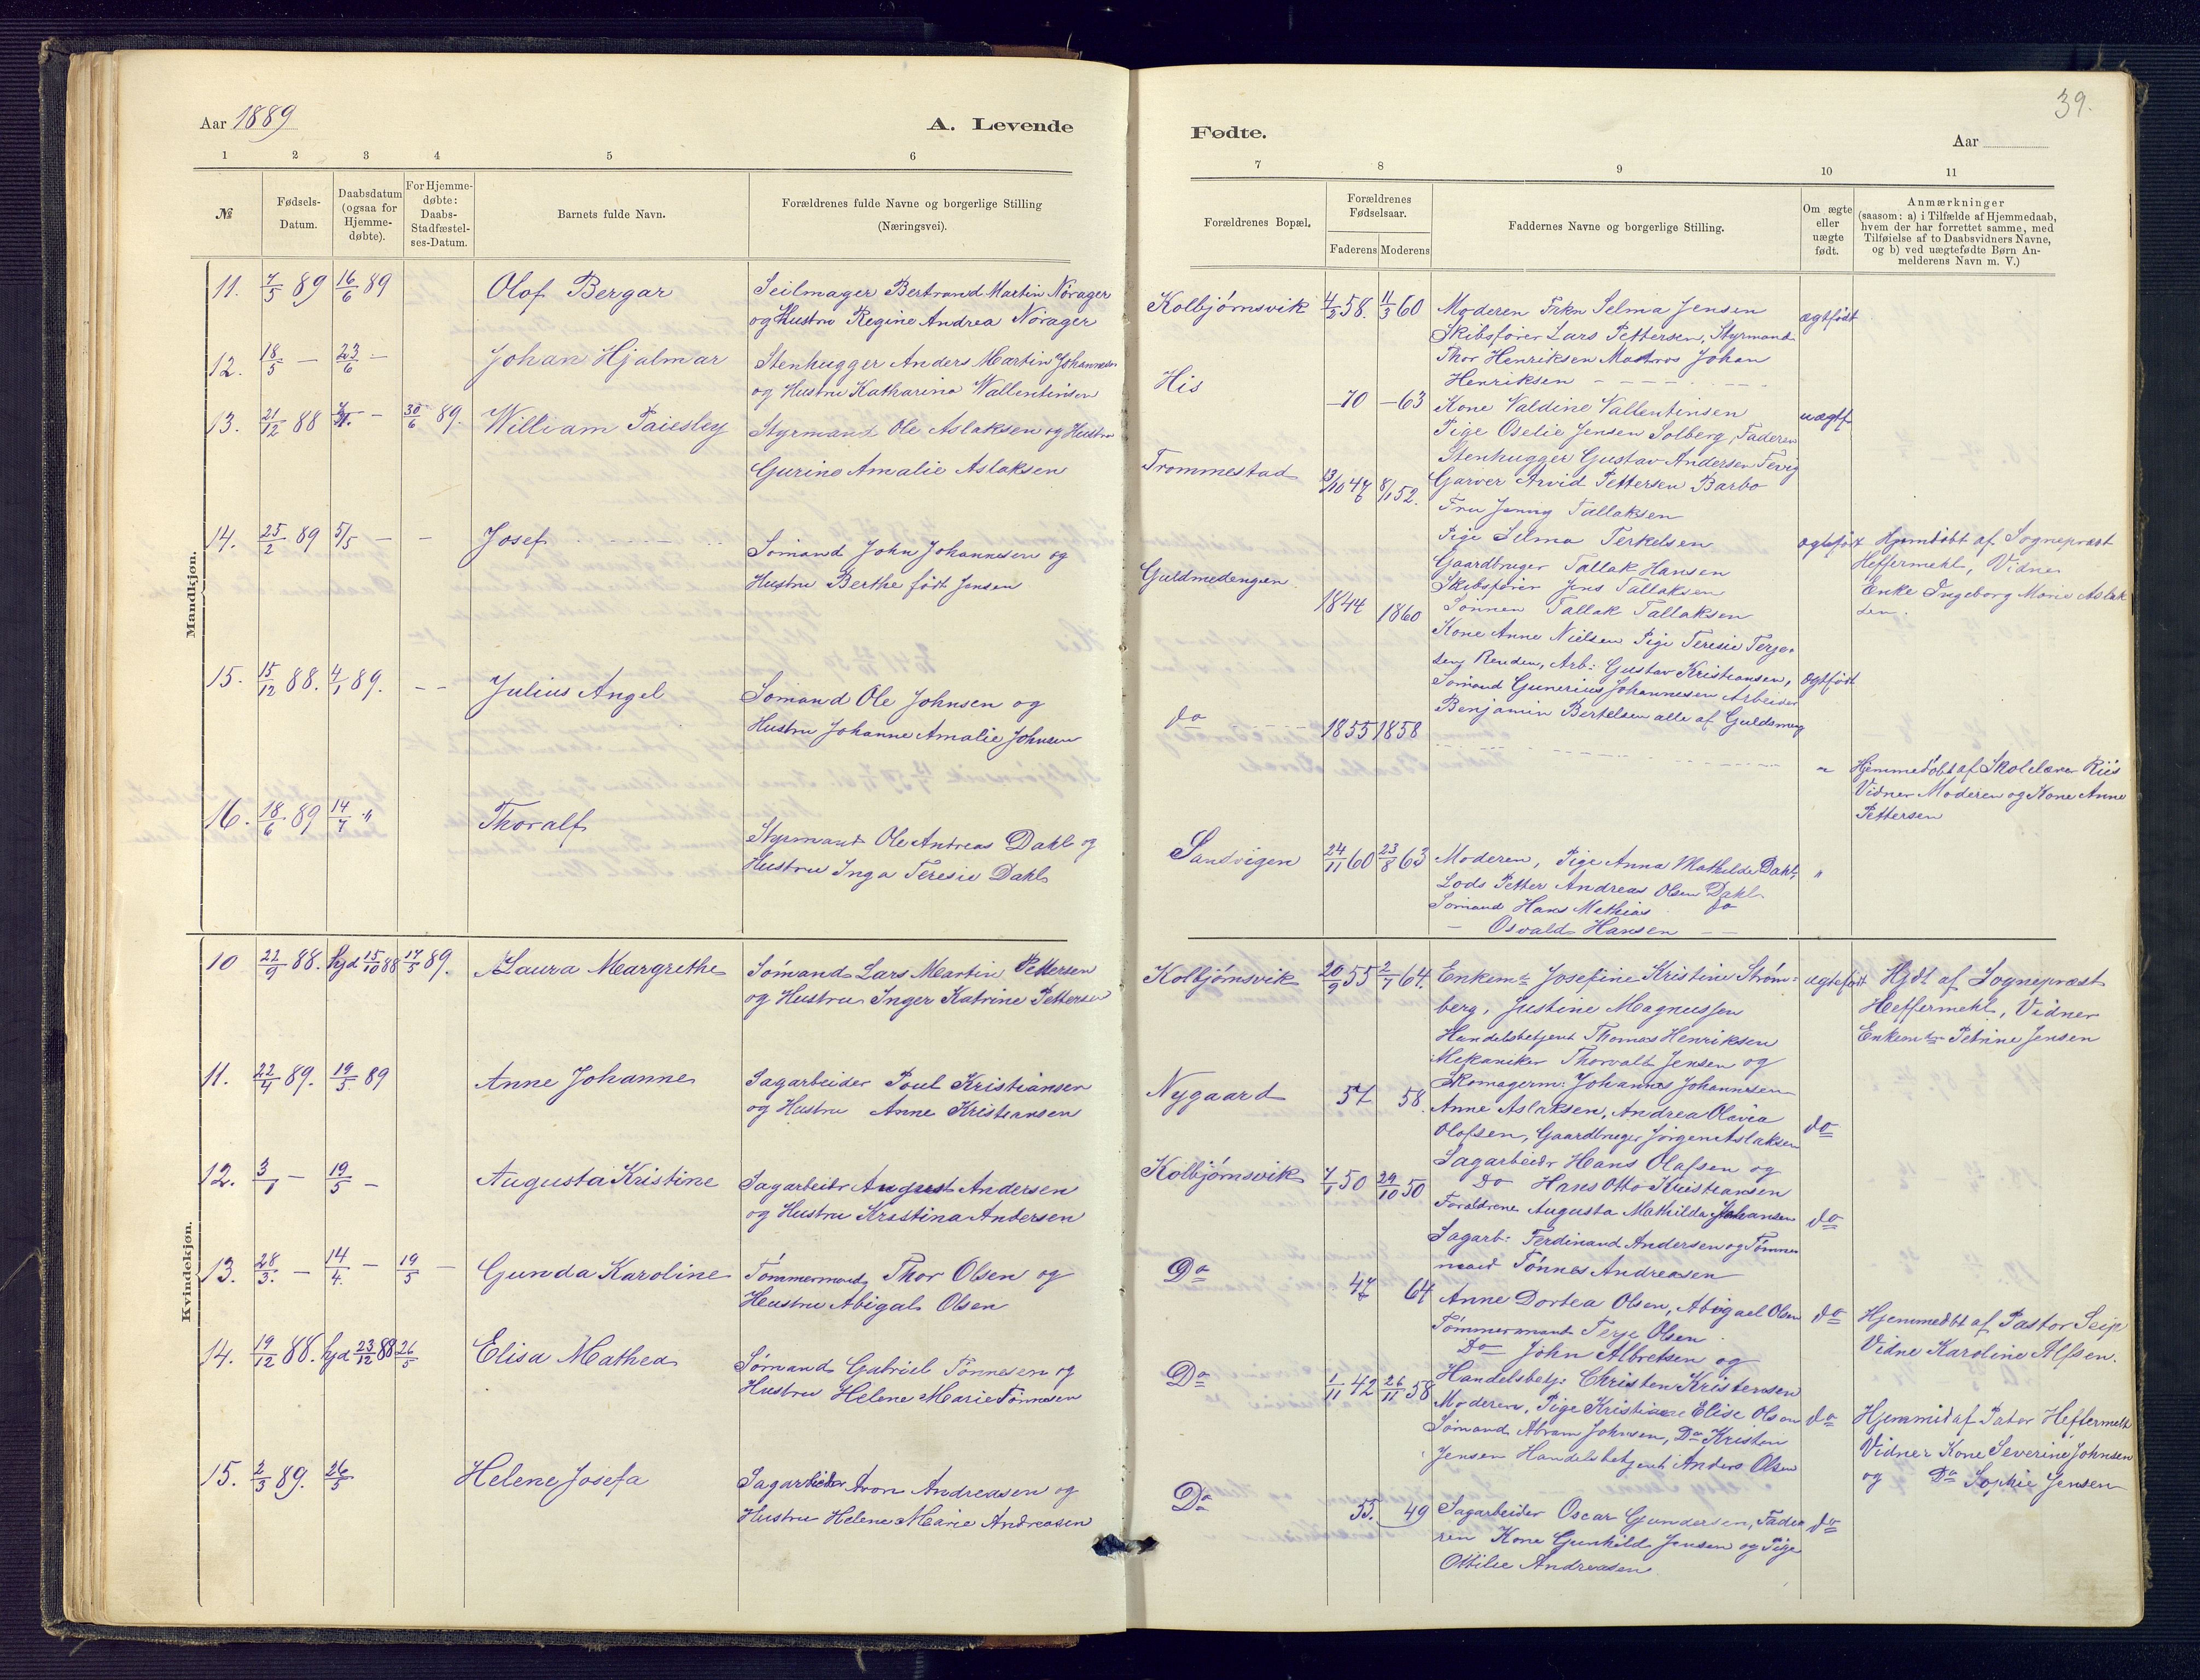 39.
Aar 1889
A. Levende
Fødte.
Aar
1 2 3 4 5 6
7 8 9 10 11
№
Fødsels-
Datum.
Daabsdatum
(ogsaa for
Hjemme-
døbte).
For Hjemme-
døbte:
Daabs-
Stadfæstel-
ses-Datum.
Barnets fulde Navn.
Forældrenes fulde Navne og borgerlige Stilling
(Næringsvei).
Forældrenes Bopæl.
Forældrenes
Fødselsaar.
Faderens
Moderens
Faddernes Navne og borgerlige Stilling.
Om ægte
eller
uægte
født.
Anmærkninger
(saasom: a) i Tilfælde af Hjemmedaab,
hvem der har forrettet samme, med
Tilføielse af to Daabsvidners Navne,
og b) ved uægtefødte Børn An-
melderens Navn m. V.)
Mandkjøn.
11. 7/5 89 16/6 89 Olof Bergar
Seilmager Bertrand Martin Nørager
og Hustru Regine Andrea Nørager
12. 18/5 — 23/6 — Johan Hjalmar
Stenhugger Anders Martin Johannesen
og Hustru Katharina Wallentinsen
13. 21/12 88 — 30/6 89. William Paiesley
Styrmand Ole Aslaksen og Hustru
Gurine Amalie Aslaksen
14. 25/2 89 5/5 — — Josef
Sømand John Johannesen og
Hustru Berthe født Jensen
15. 15/12 88. 4/1 89. — Julius Angel
Sømand Ole Johnsen og
Hustru Johanne Amalie Johnsen
16. 18/6 89 14/7 " Thoralf
Styrmand Ole Andreas Dahl og
Hustru Inga Teresie Dahl
Kvindekjøn.
10 22/9 88. hjd 15/10 88 17/5 89. Laura Margrethe
Sømand Lars Martin Pettersen
og Hustru Inger Katrine Pettersen
11. 22/4 89. 19/5 89 Anne Johanne
Sagarbeider Poul Kristiansen
og Hustru Anne Kristiansen
12. 3/1 — 19/5 — Augusta Kristine
Sagarbeidr August Andersen
og Hustru Kristina Andersen
13. 28/3. — 14/4. — 19/5 — Gunda Karoline
Tømmermand Thor Olsen og
Hustru Abigal Olsen
14. 19/12 88. hjd 23/12 88 26/5 Elisa Mathea
Sømand Gabriel Tønnesen og
Hustru Helene Marie Tønnesen
15. 2/3 89. 26/5 Helene Josefa
Sagarbeider Aron Andreasen og
Hustru Helene Marie Andreasen
Kolbjørnsvik 4/2 58. 11/3 60 Moderen Frkn Selma Jensen ægtfødt
Skibsfører Lars Pettersen, Styrmand
Thor Henriksen Matros Johan
Henriksen
His — 70 — 63 Kone Valdine Vallentinsen uægtf
Pige Oselie Jensen Solberg, Faderen
Stenhugger Gustav Andersen Fevig
Garver Arvid Pettersen Barbo
Trommestad 13/10 47 8/1 52.
Fru Jenny Tallaksen
Pige Selma Terkelsen ægtefødt
Gaardbruger Tallak Hansen
Skibsfører Jens Tallaksen
Sønnen Tallak Tallaksen
Hjemdøbt af Sognepræst
Heffermehl, Vidner
Enke Ingeborg Marie Aslak
sen.
Guldmedengen 1844 1860
Kone Anne Nielsen Pige Teresie Terje-
sen Renden, Arb: Gustav Kristiansen, ægtfødt
Sømand Gunerius Johannesen Arbeider
Benjamin Bertelsen alle af Guldsmeng
do 1855 1858
" Hjemmedøbt af Skolelærer Riis
Vidner Moderen og Kone Anne
Pettersen
Sandvigen 24/11 60 23/8 63 Moderen, Pige Anna Mathilde Dahl, "
Lods Petter Andreas Olsen Dahl
Sømand Hans Mathias do
— Osvald Hansen —
Kolbjørnsvik 20/9 55 2/7 64. Enkem: Josefine Kristine Strøm- ægtefødt
berg, Justine Magnussen
Handelsbetjent Thomas Henriksen
Mekaniker Thorvalt Jensen og
Skomagerm: Johannes Johannesen
Hjdt af Sognepræst
Heffermehl, Vidner
Petrine Jensen
Nygaard 57 58.
Anne Aslaksen, Andrea Olavia do
Olafsen, Gaardbruger Jørgen Aslaksen
Sagarbeidr Hans Olafsen og
do Hans Otto Kristiansen
Kolbjørnsvik 7/1 50 29/10 50
Forældrene Augusta Mathilda Johansen do
Sagarb: Ferdinand Andersen og Tømmer
mand Tønnes Andreasen
Do 47 64
Anne Dortea Olsen, Abigael Olsen do
Tømmermand Terje Olsen
Do John Albretsen og
Handelsbetj: Christen Kristensen
Hjemmedbt af Pastor Seip
Vidne Karoline Alfsen.
Do 1/11 42 26/11 58
Moderen, Pige Kristiane Elise Olsen do
Sømand Abram Johnsen, Do Kristen
Jensen Handelsbetjent Anders Olsen
Hjemmid af Pator Heffermehl
Vidner Kone Severine Johnsen
og Do Sophie Jensen
Do 55. 49 Sagarbeider Oscar Gundersen, Fade do
ren Kone Gunhild Jensen og Pige
Ottilie Andreasen